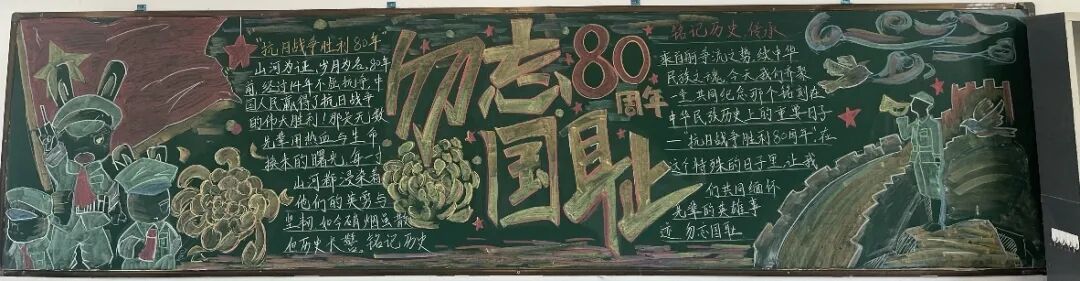 "抗日战争胜利80年"
山河为证,岁月为名,80年
前,经过14年不屈抗争,中
国人民赢得了抗日战争
的伟大胜利!那是无数
先辈用热血与生命
换来的曙光,每一寸
山河都浸染着
他们的英勇与
坚韧,如今硝烟虽散
但历史长鸣,铭记历史
勿忘
国耻
80
周年
铭记历史,传承
乘百舸争流之势,续中华
民族之魂,今天,我们齐聚
一堂,共同纪念那个铭刻在
中华民族历史上的重要日子
—抗日战争胜利80周年,在
这个特殊的日子里,让我
们共同缅怀
先辈的英雄事
迹,勿忘国耻